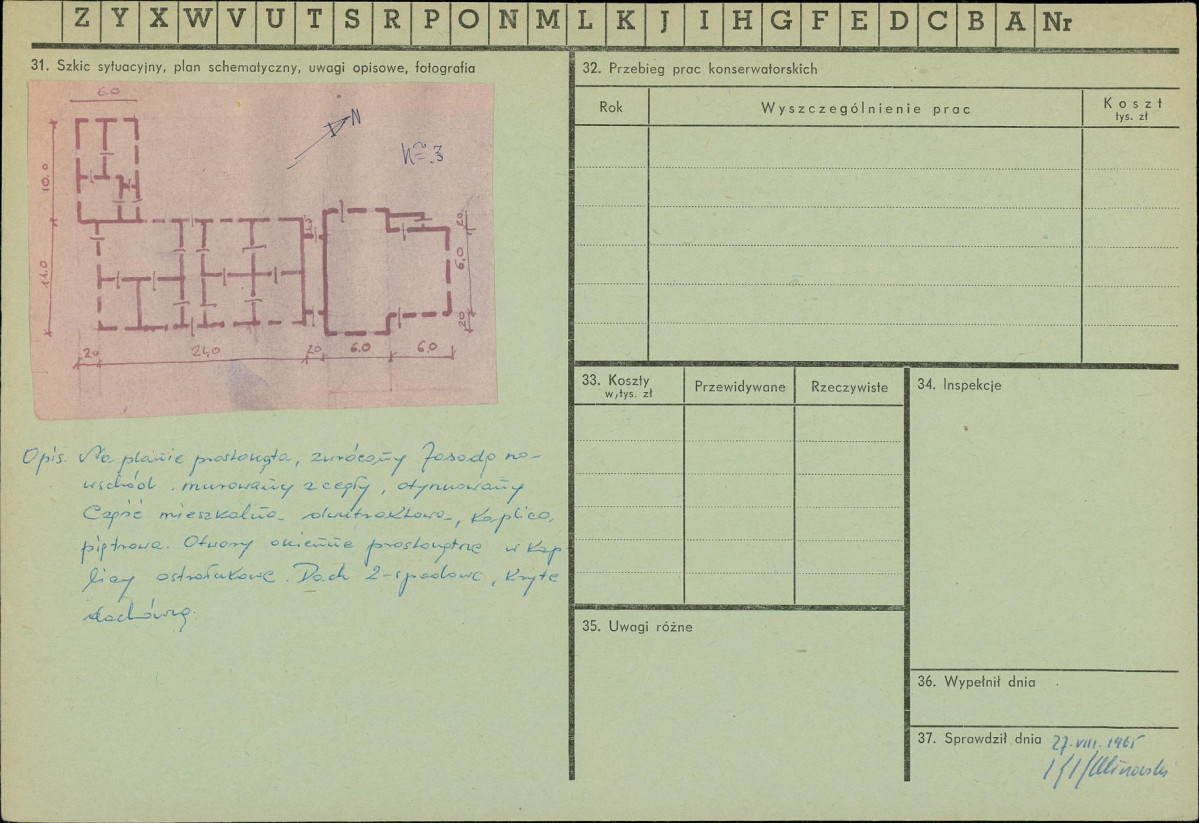 Z Y X W V U T S R P O N M L K J I H G F E D C B A Nr
31. Szkic sytuacyjny, plan schematyczny, uwagi opisowe, fotografia
6.0
N
10.0
11.0
2.0
6.0
2.0
2.0 24.0 2.0 6.0 6.0
Opis. Na planie prostokąta, zwrócony fasadą na
wschód. murowany z cegły, otynkowany
Część mieszkalna dwutraktowa, kaplica
piętrowa. Otwory okienne prostokątne w kap
licy ostrołukowe. Dach 2-spadowe, kryte
dachówką.
32. Przebieg prac konserwatorskich
Rok Wyszczególnienie prac Koszt
tys. zł
33. Koszty
w tys. zł
Przewidywane Rzeczywiste
34. Inspekcje
35. Uwagi różne
36. Wypełnił dnia
37. Sprawdził dnia 27.VIII.1965